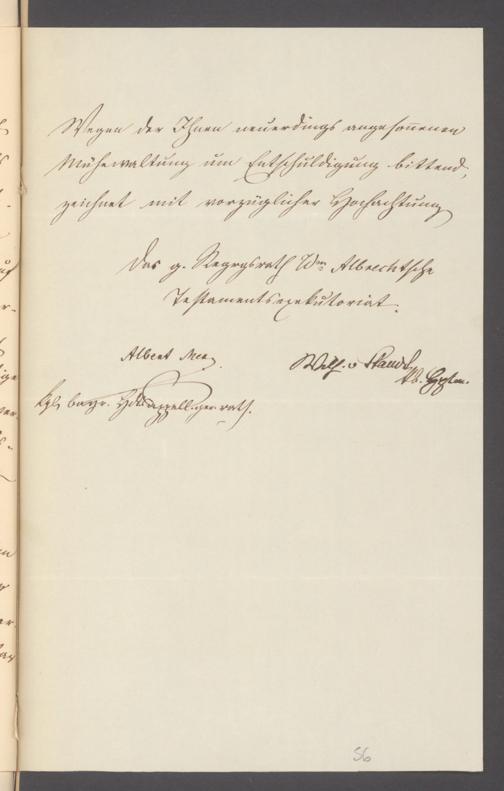 Wegen der Ihnen neuerdings angesonnenen
Mühewaltung um Entschuldigung bittend,
zeichnet mit vorzüglicher Hochachtung
Das g. Regrgsrath Albrechtsche
Testamentsexekutoriat.
Albert
Wilh. v
kgl. bayr. appell.ger.rath.
56